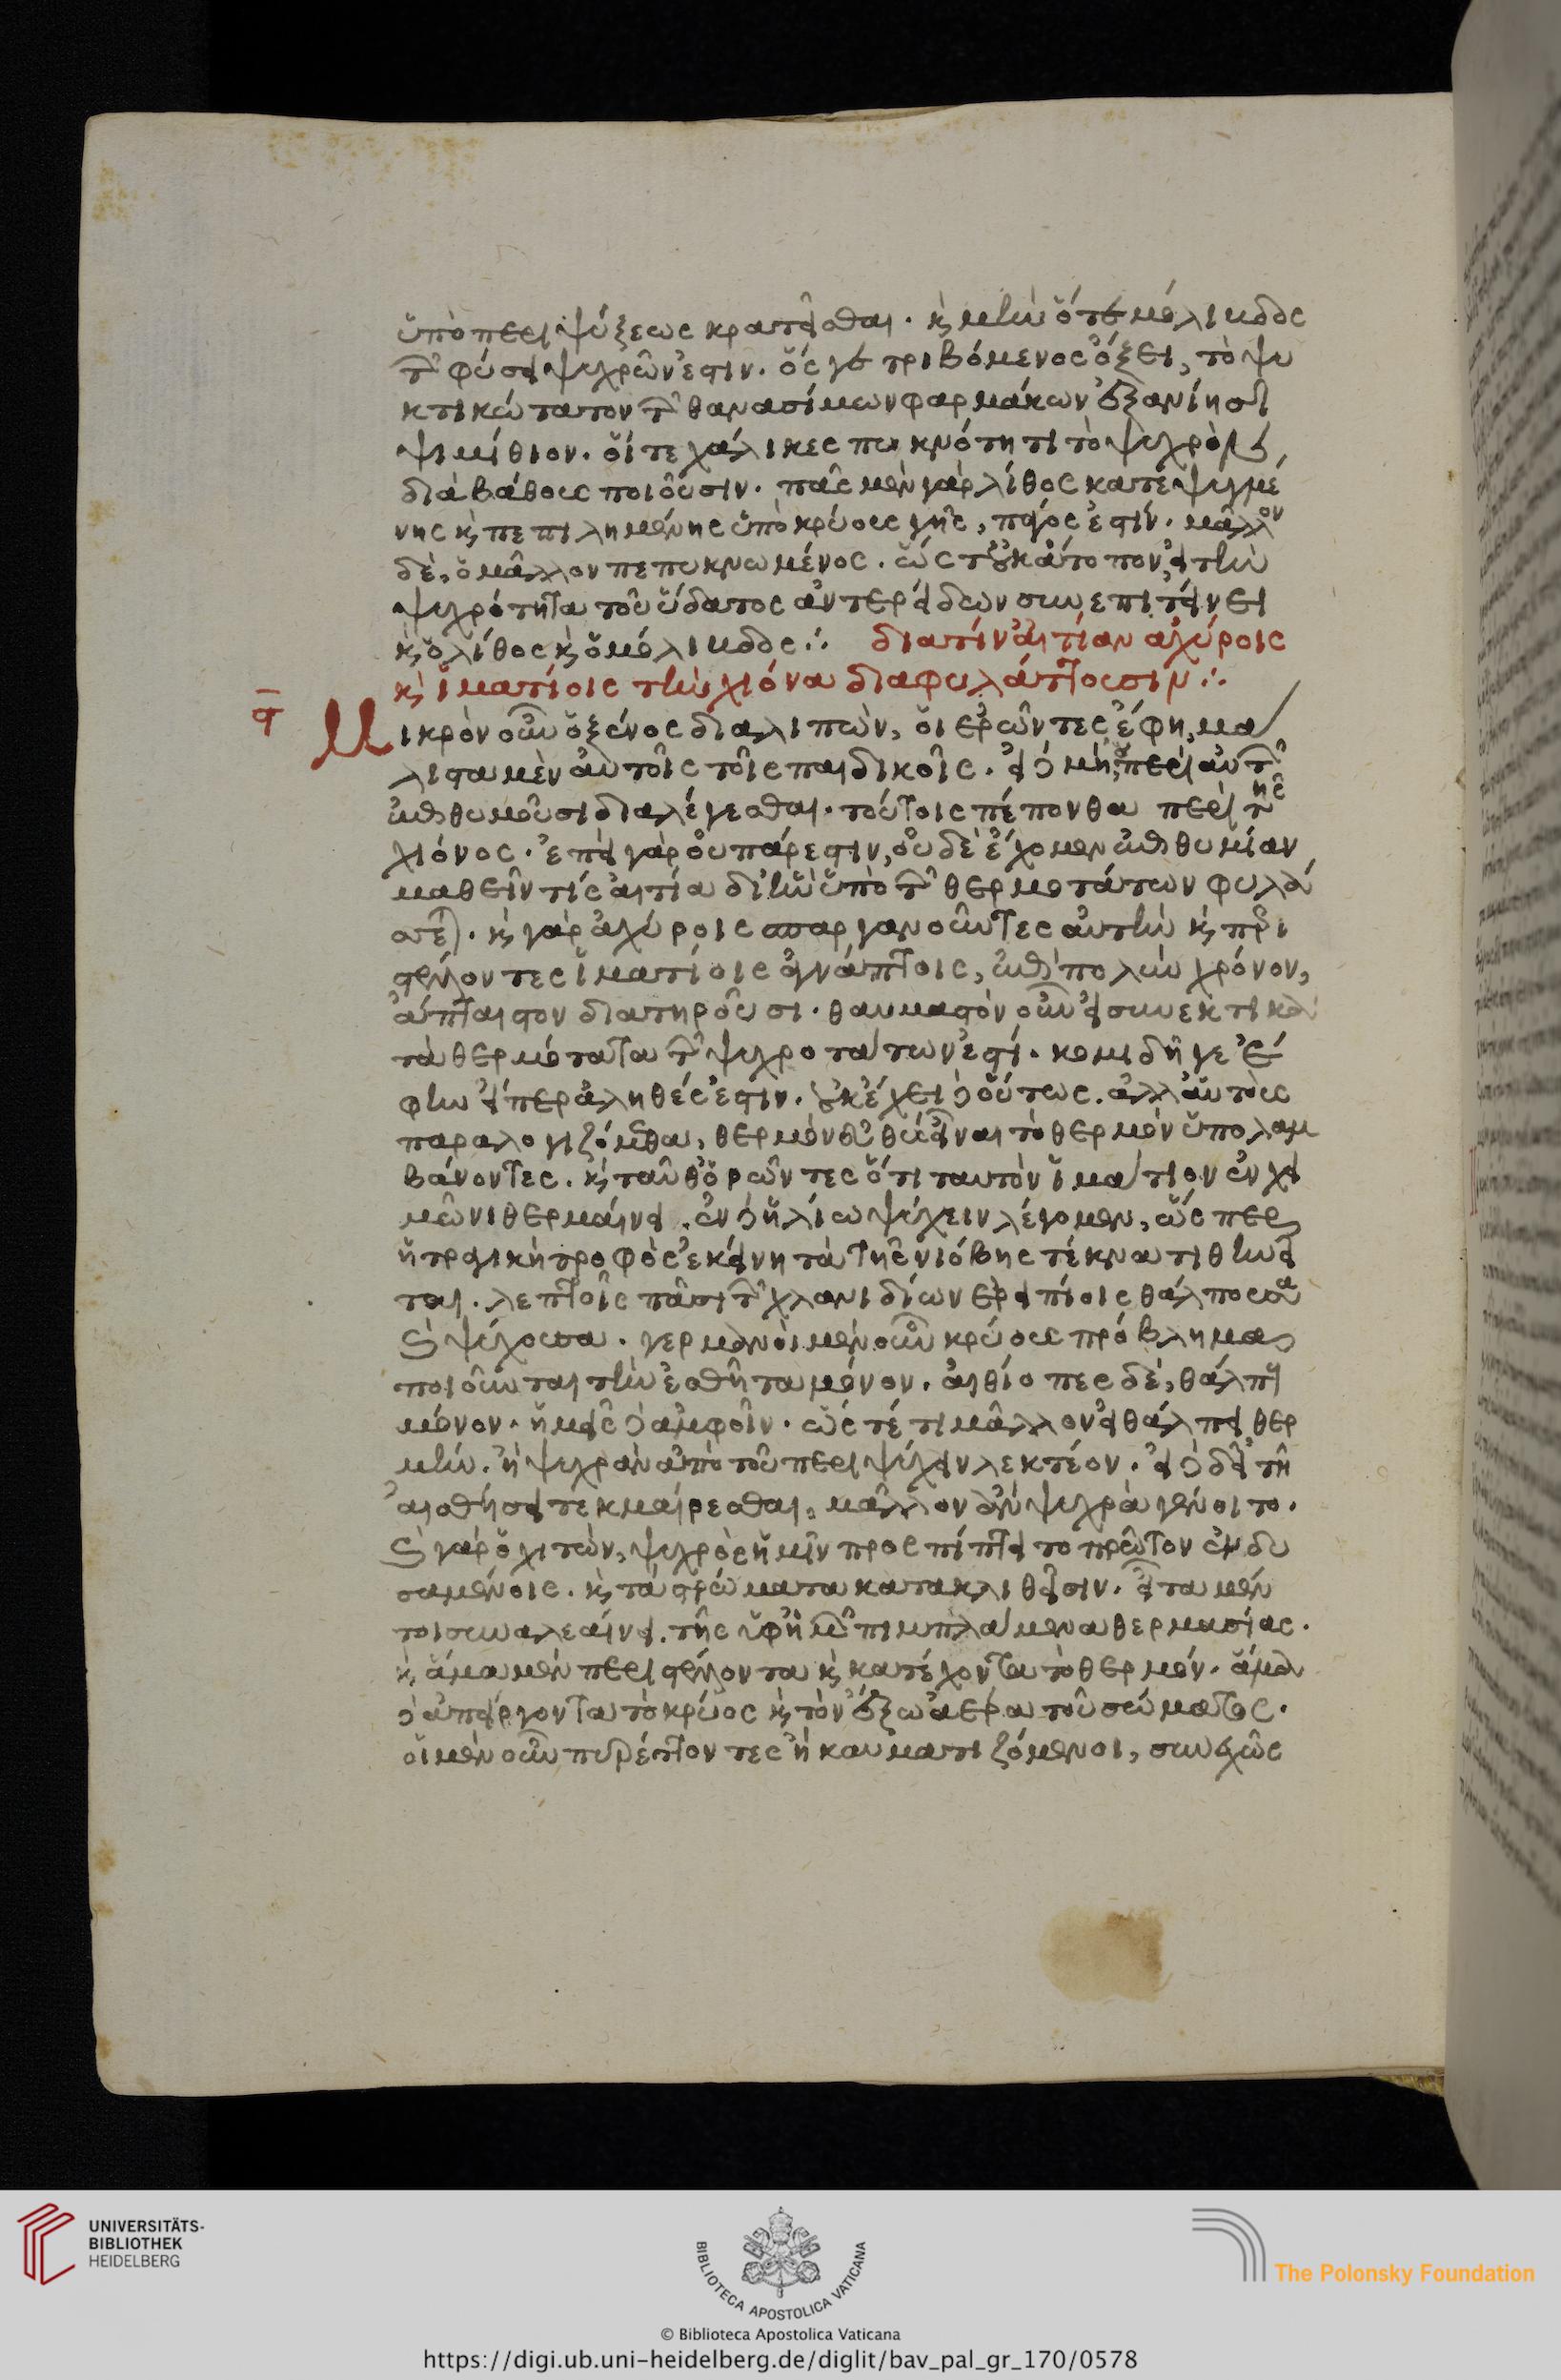 ὑπὸ περιψύξεως κρατεῖσθαι. καὶ μὴν ὅτε μόλιβδος
τῶν φύσει ψυχρῶν ἐστιν. ὅς γε τριβόμενος ὄξει, τὸ ψυ
κτικώτατον τῶν θανασίμων φαρμάκων ἐξανίησι
ψιμίθιον. οἵ τε χάλικες πυκνότητι τὸ ψυχρὸν
διὰ βάθους ποιοῦσιν. πᾶς μὲν γὰρ λίθος κατεψυγμέ
νης καὶ πεπιλημένης ὑπὸ κρύους γῆς, πάγος ἐστίν. μᾶλλον
δὲ, ὁ μᾶλλον πεπυκνωμένος. ὥστ' οὐκ ἄτοπον, εἰ τὴν
ψυχρότητα τοῦ ὕδατος ἀντερείδων συνεπιτείνει
καὶ ὁ λίθος καὶ ὁ μόλιβδος ∴ διατίν' αἰτίαν ἀχύροις
καὶ ἱματίοις τὴν χιόνα διαφυλάττουσιν ∴
ϛ Μικρὸν οὖν ὁ ξένος διαλιπὼν, οἱ ἐρῶντες ἔφη, μά
λιστα μὲν αὐτοῖς τοῖς παιδικοῖς. εἰ δὲ μὴ, περὶ αὐτῶν
ἐπιθυμοῦσι διαλέγεσθαι. τούτοις πέπονθα περὶ τῆς
χιόνος. ἐπεὶ γὰρ οὐ πάρεστιν, οὐδὲ ἔχομεν ἐπιθυμίαν
μαθεῖν τίς αἰτία δι' ἣν ὑπὸ τῶν θερμοτάτων φυλάσ
σεται. καὶ γὰρ ἀχύροις σπαργανοῦντες αὐτὴν καὶ περι
στέλλοντες ἱματίοις ἀγνάπτοις, ἐπὶ πολὺν χρόνον,
ἄπταιστον διατηροῦσι. θαυμαστὸν οὖν εἰ συνεκτικὰ
τὰ θερμότατα τῶν ψυχροτάτων ἐστί. κομιδῆ γε ἔ
φην εἴπερ ἀληθές ἐστιν. οὐκ ἔχει δὲ οὕτως. ἀλλ' αὑτοὺς
παραλογιζόμεθα, θερμὸν εὐθὺς εἶναι τὸ θερμὸν ὑπολαμ
βάνοντες. καὶ ταῦθ' ὁρῶντες ὅτι ταυτὸν ἱμάτιον ἐν χει
μῶνι θερμαίνει. ἐν δὲ ἡλίω ψύχειν λέγομεν, ὥσπερ
ἡ τραγικὴ τροφὸς ἐκείνη τὰ τῆς νιόβης τέκνα τιθηνεῖ
ται. λεπτοῖς πᾶσι τῶν χλανιδίων ἐρειπίοις θάλπουσα
καὶ ψύχουσα. γερμανοὶ μὲν οὖν κρύους πρόβλημα
ποιοῦνται τὴν ἐσθῆτα μόνον. αἰθίοπες δὲ, θάλπους
μόνον. ἡμεῖς δὲ ἀμφοῖν. ὥστέ τι μᾶλλον εἰ θάλπει θερ
μὴν. ἢ ψυχρὰν ἀπὸ τοῦ περιψύχειν λεκτέον. εἰ δὲ δεῖ τῆ
αἰσθήσει τεκμαίρεσθαι, μᾶλλον ἂν ψυχρὰ γένοιτο.
καὶ γὰρ ὁ χιτὼν, ψυχρὸς ἡμῖν προσπίπτει τὸ πρῶτον ἐνδυ
σαμένοις. καὶ τὰ στρώματα κατακλιθεῖσιν. εἶτα μέν
τοι συναλεαίνει. τῆς ἀφ' ἡμῶν πιμπλάμενα θερμασίας.
καὶ ἅμα μὲν περιστέλλοντα καὶ κατέχοντα τὸ θερμόν. ἅμα
δὲ ἀπείργοντα τὸ κρύος καὶ τὸν ἔξω ἀέρα τοῦ σώματος.
οἱ μὲν οὖν πυρέττοντες ἢ καυματιζόμενοι, συνεχῶς
UNIVERSITÄTS-
BIBLIOTHEK
HEIDELBERG
BIBLIOTECA APOSTOLICA VATICANA
The Polonsky Foundation
© Biblioteca Apostolica Vaticana
https://digi.ub.uni-heidelberg.de/diglit/bav_pal_gr_170/0578